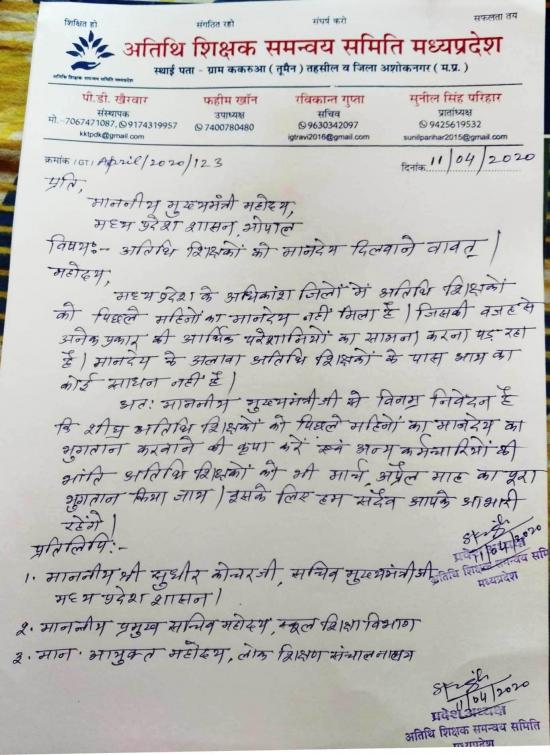 शिक्षित हो संगठित रहो संघर्ष करो सफलता तय
अतिथि शिक्षक समन्वय समिति मध्यप्रदेश
अतिथि शिक्षक समन्वय समिति मध्यप्रदेश
स्थाई पता - ग्राम ककरुआ (तूमैन) तहसील व जिला अशोकनगर (म.प्र.)
पी.डी. खैरवार फहीम खॉन रविकान्त गुप्ता सुनील सिंह परिहार
संस्थापक उपाध्यक्ष सचिव प्रांताध्यक्ष
मो.-7067471087, 9174319957 7400780480 9630342097 9425619532
kktpdk@gmail.com igtravi2016@gmail.com sunilparihar2015@gmail.com
क्रमांक (GT) April/2020/123 दिनांक 11/04/2020
प्रति,
माननीय मुख्यमंत्री महोदय,
मध्य प्रदेश शासन, भोपाल
विषय:- अतिथि शिक्षकों को मानदेय दिलवाने वावत्।
महोदय,
मध्य प्रदेश के अधिकांश जिलों में अतिथि शिक्षकों
को पिछले महिनों का मानदेय नहीं मिला है। जिसकी वजह से
अनेक प्रकार की आर्थिक परेशानियों का सामना करना पड़ रहा
है। मानदेय के अलावा अतिथि शिक्षकों के पास आय का
कोई साधन नहीं है।
अतः माननीय मुख्यमंत्री जी से विनम्र निवेदन है
कि शीघ्र अतिथि शिक्षकों को पिछले महिनों का मानदेय का
भुगतान करवाने की कृपा करें एवं अन्य कर्मचारियों की
भांति अतिथि शिक्षकों को भी मार्च, अप्रैल माह का पूरा
भुगतान किया जाय। इसके लिए हम सदैव आपके आभारी
रहेंगे।
11/04/2020
अतिथि शिक्षक समन्वय समि
मध्यप्रदेश
प्रतिलिपि:-
1. माननीय श्री सुधीर कोचर जी, सचिव मुख्यमंत्री जी,
मध्य प्रदेश शासन।
2. माननीय प्रमुख सचिव महोदय, स्कूल शिक्षा विभाग
3. मान. आयुक्त महोदय, लोक शिक्षण संचालनालय
11/04/2020
प्रदेश अध्यक्ष
अतिथि शिक्षक समन्वय समिति
मध्यप्रदेश